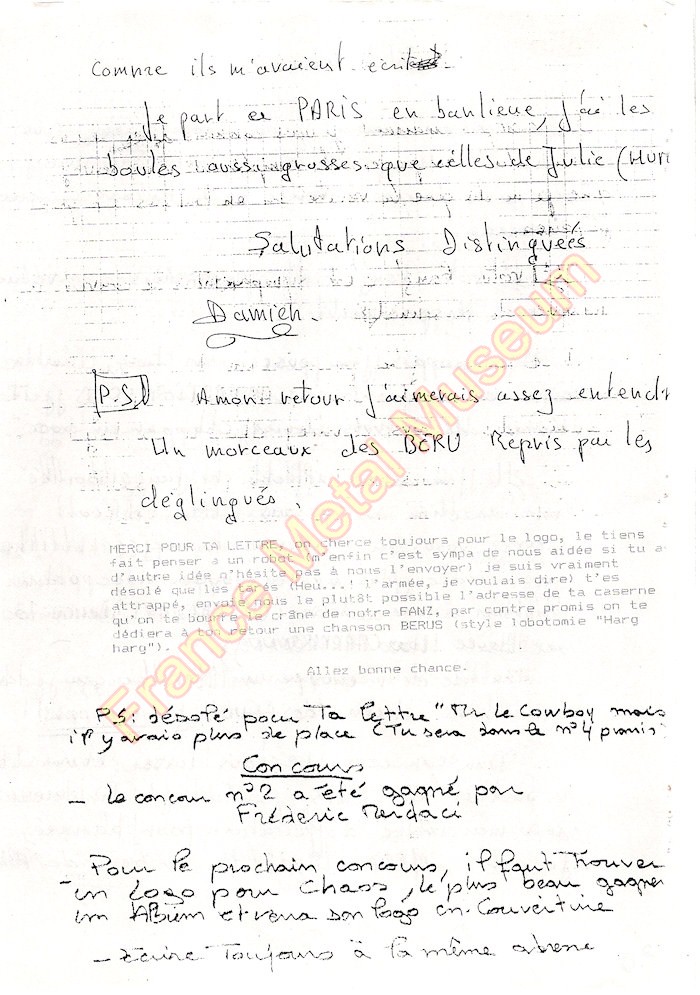 Comme ils m'avaient écrit
Je part en PARIS en banlieue, j'ai les
boules aussi grosses que celles de Julie (Huri
Salutations Distinguées
Damien.
P.S. A mon retour j'aimerais assez entendr
Un morceaux des BERU Repris par les
déglingués.
MERCI POUR TA LETTRE, on cherce toujours pour le logo, le tiens
fait penser a un robot (m'enfin c'est sympa de nous aidée si tu a
d'autre idée n'hésite pas à nous l'envoyer) je suis vraiment
désolé que les tarés (Heu...! l'armée, je voulais dire) t'es
attrappé, envoie nous le plutôt possible l'addresse de ta caserne
qu'on te bourre le crâne de notre FANZ, par contre promis on te
dédiera à ton retour une chansson BERUS (style lobotomie "Harg
harg").
Allez bonne chance.
P.S: désolé pour "Ta lettre" Mr le Cowboy mais
il y avais plus de place (Tu sera dans le n°4 promis
Concours
- Le concour n°2 a été gagné par
Fréderic Merdaci
- Pour le prochain concours, il faut Trouver
un Logo pour Chaos, le plus beau gagner
un Album et verra son logo en Couverture
- écrire Toujours à la même adresse
France Metal Museum